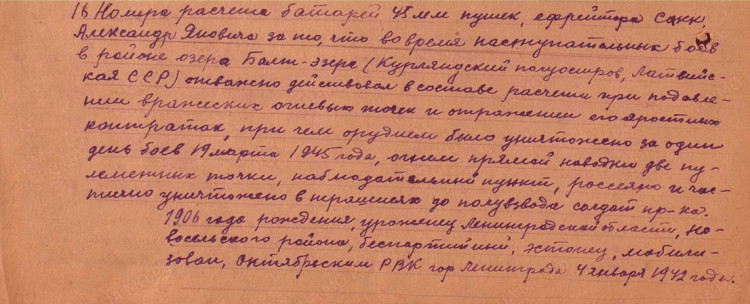 16 Номера расчета батареи 45 мм пушек, ефрейтора Сакк
Александр Яновича за то, что во время наступательных боев
в районе озера Балт-эзерс (Курляндский полуостров, Латвийс-
кая ССР) отважно действовал в составе расчета при подавле-
нии вражеских огневых точек и отражении его яростных
контратак, при чем орудием было уничтожено за один
день боев 19 марта 1945 года, огнем прямой наводки две пу-
леметных точки, наблюдательный пункт, рассеяно и час-
тично уничтожено в траншеях до полувзвода солдат пр-ка.
1906 года рождения, уроженец Ленинградской области, Но-
восельского района, беспартийный, эстонец, мобили-
зован, Октябрьским РВК гор Ленинграда 4 января 1942 года.